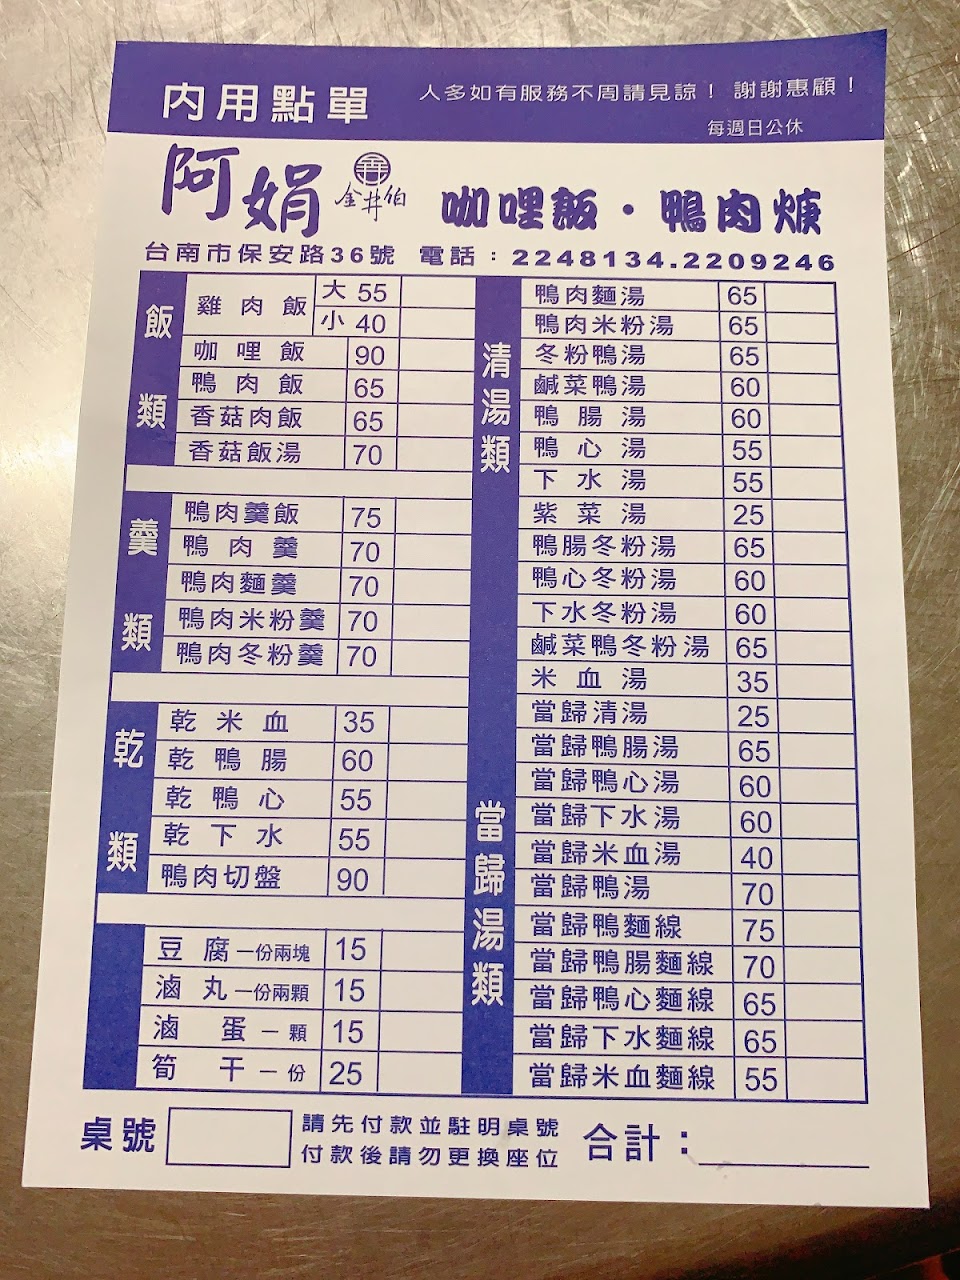 內用點單
人多如有服務不周請見諒！ 謝謝惠顧！
每週日公休
阿娟 金井伯 咖哩飯・鴨肉焿
台南市保安路36號 電話：2248134.2209246
飯類
雞肉飯 大 55
小 40
咖哩飯 90
鴨肉飯 65
香菇肉飯 65
香菇飯湯 70
羹類
鴨肉羹飯 75
鴨肉羹 70
鴨肉麵羹 70
鴨肉米粉羹 70
鴨肉冬粉羹 70
乾類
乾米血 35
乾鴨腸 60
乾鴨心 55
乾下水 55
鴨肉切盤 90
豆腐 一份兩塊 15
滷丸 一份兩顆 15
滷蛋 一顆 15
筍干 一份 25
清湯類
鴨肉麵湯 65
鴨肉米粉湯 65
冬粉鴨湯 65
鹹菜鴨湯 60
鴨腸湯 60
鴨心湯 55
下水湯 55
紫菜湯 25
鴨腸冬粉湯 65
鴨心冬粉湯 60
下水冬粉湯 60
鹹菜鴨冬粉湯 65
米血湯 35
當歸湯類
當歸清湯 25
當歸鴨腸湯 65
當歸鴨心湯 60
當歸下水湯 60
當歸米血湯 40
當歸鴨湯 70
當歸鴨麵線 75
當歸鴨腸麵線 70
當歸鴨心麵線 65
當歸下水麵線 65
當歸米血麵線 55
桌號
請先付款並駐明桌號
付款後請勿更換座位
合計：